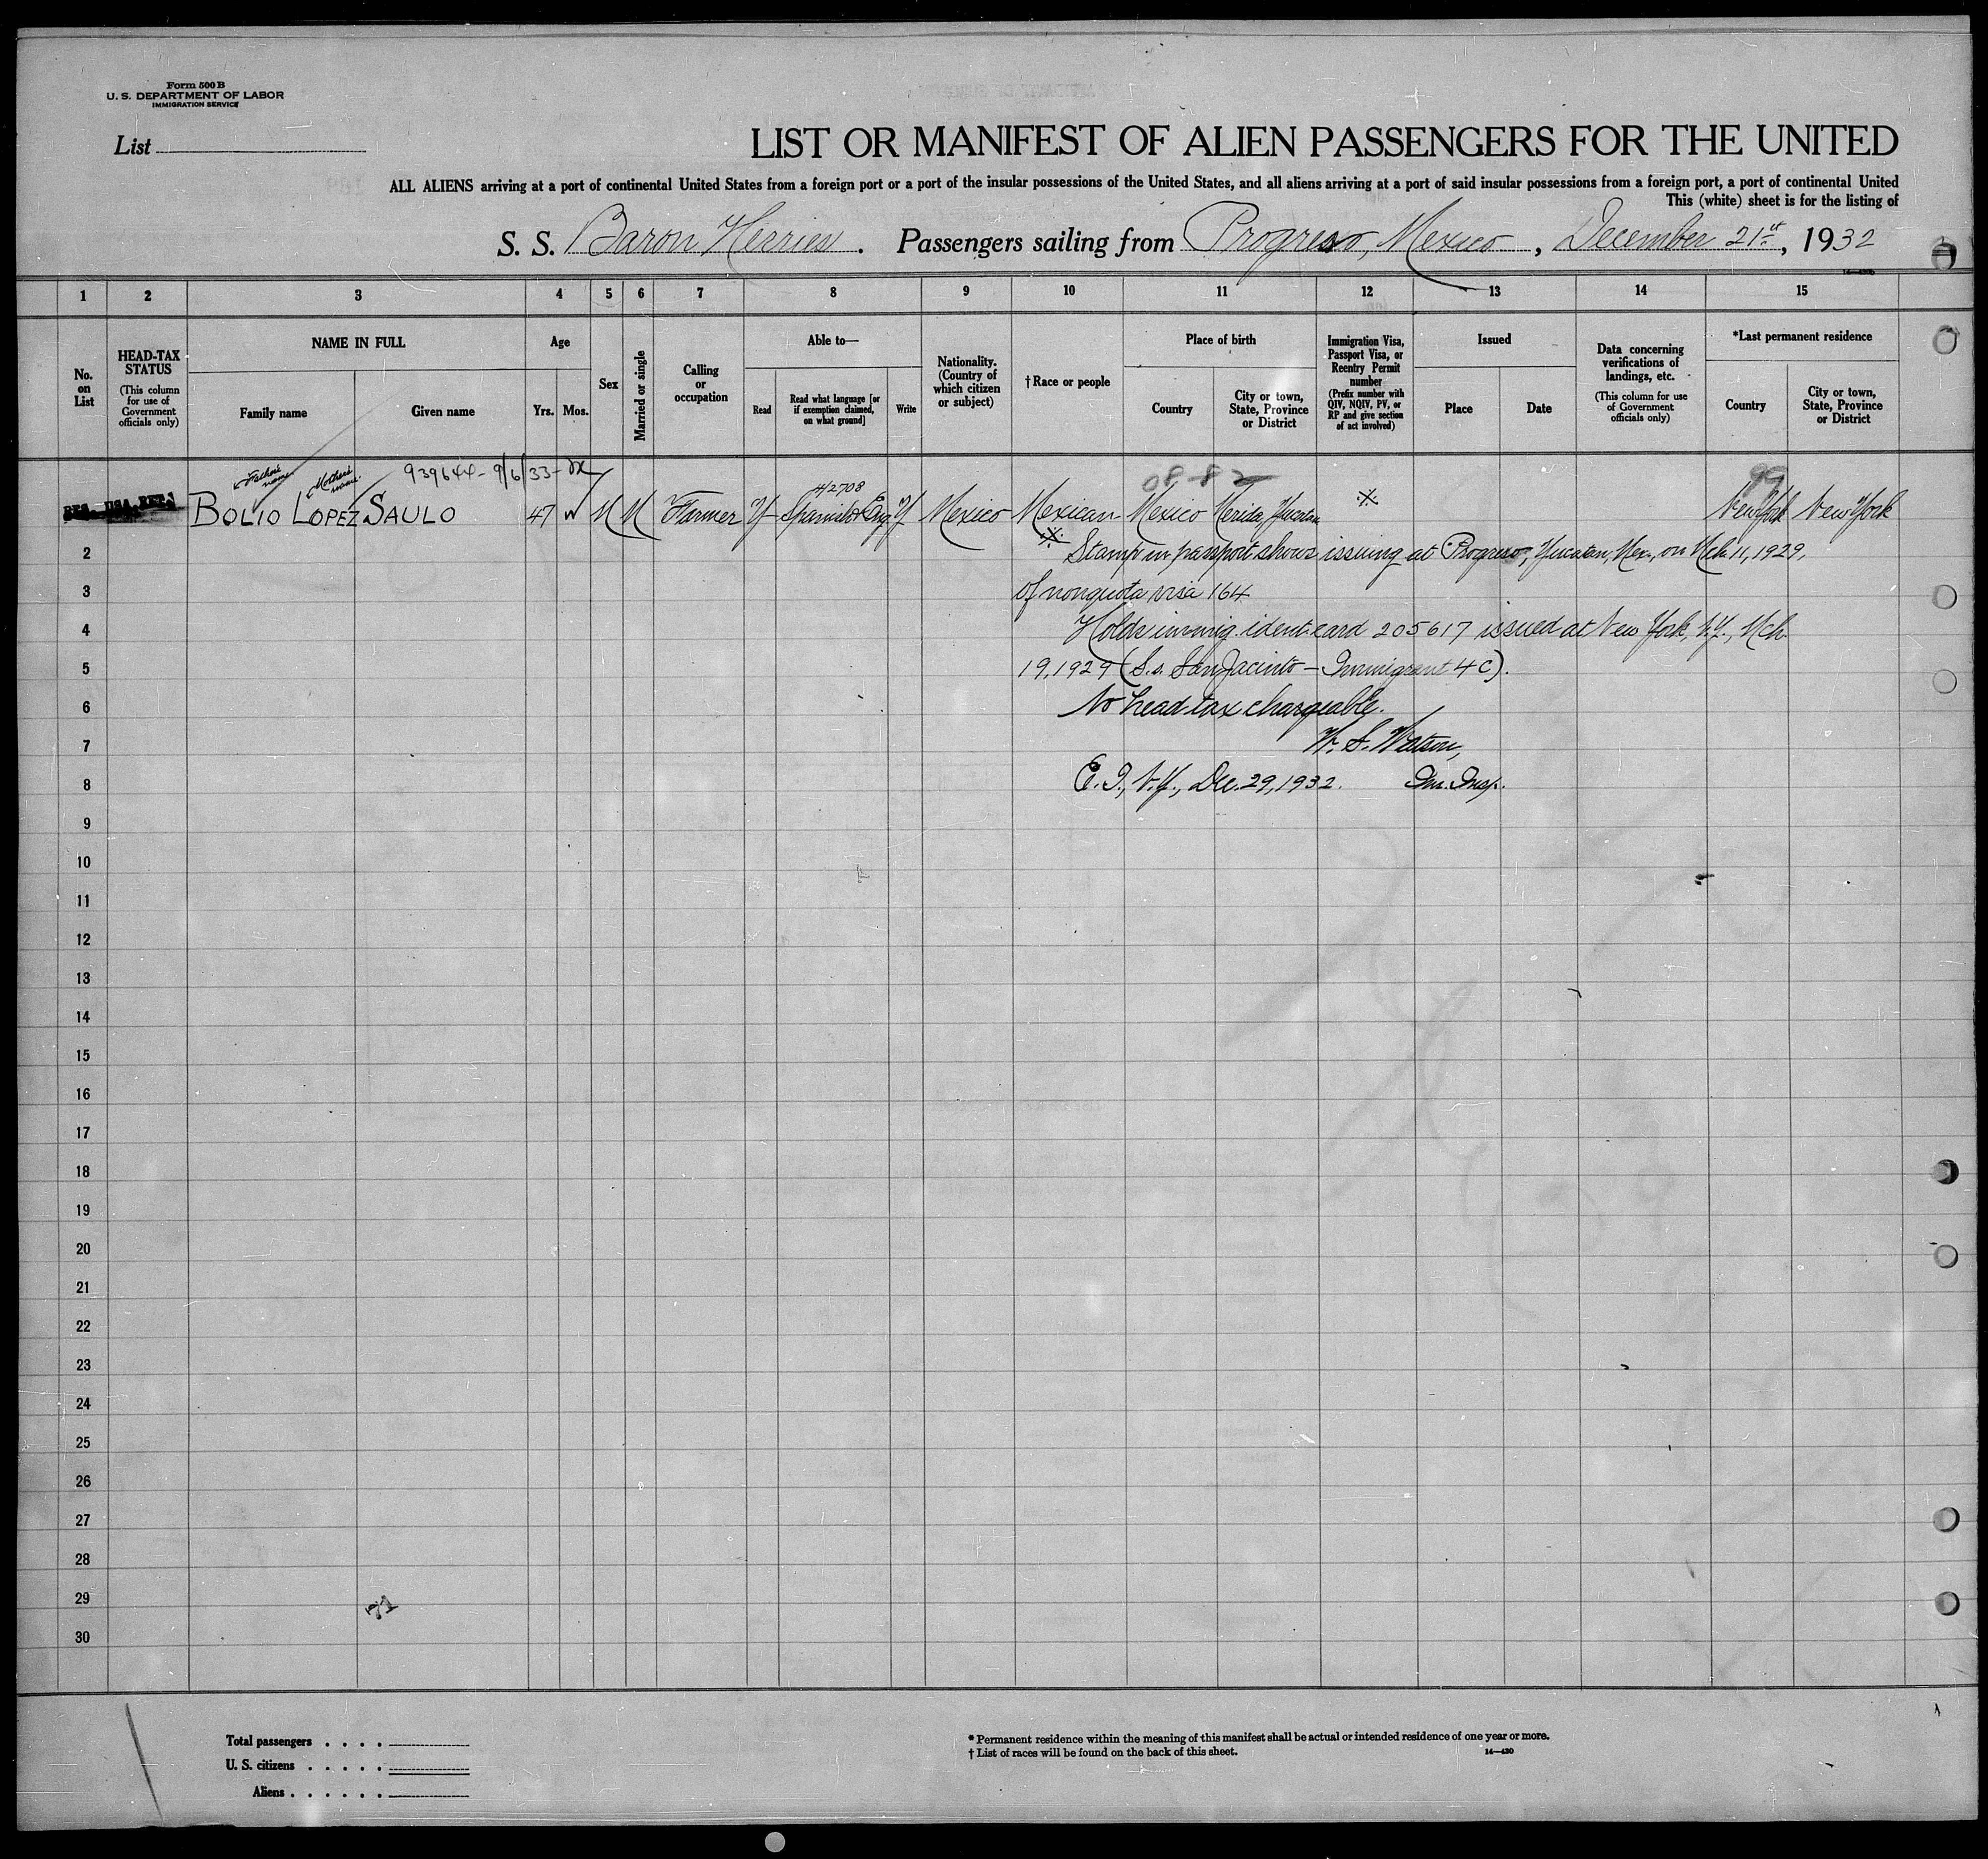 Form 500 B
U. S. DEPARTMENT OF LABOR
IMMIGRATION SERVICE
List
LIST OR MANIFEST OF ALIEN PASSENGERS FOR THE UNITED
ALL ALIENS arriving at a port of continental United States from a foreign port or a port of the insular possessions of the United States, and all aliens arriving at a port of said insular possessions from a foreign port, a port of continental United
This (white) sheet is for the listing of
S. S. Baron Herries. Passengers sailing from Progreso, Mexico, December 21st, 1932
1 2 3 4 5 6 7 8 9 10 11 12 13 14 15
No. on List
HEAD-TAX STATUS
(This column for use of Government officials only)
NAME IN FULL
Family name
Given name
Age
Yrs. Mos.
Sex
Married or single
Calling or occupation
Able to—
Read
Read what language [or if exemption claimed, on what ground]
Write
Nationality. (Country of which citizen or subject)
†Race or people
Place of birth
Country
City or town, State, Province or District
Immigration Visa, Passport Visa, or Reentry Permit number
(Prefix number with QIV, NQIV, PV, or RP and give section of act involved)
Issued
Place
Date
Data concerning verifications of landings, etc.
(This column for use of Government officials only)
*Last permanent residence
Country
City or town, State, Province or District
Father's name Mother's name 939644-9/6/33
08-82 99
42708
BOLIO LOPEZ SAULO 47 M M Farmer Y Spanish & Eng Y Mexico Mexican Mexico Merida, Yucatan New York New York
2 Stamp in passport shows issuing at Progreso, Yucatan, Mex., on Mch. 11, 1929,
3 of nonquota visa 164
4 Holds immig. ident. card 205617 issued at New York, N.Y., Mch.
5 19, 1929 (S.s. San Jacinto – Immigrant 4 C).
6 No head tax chargeable.
7 W. S. Watson,
8 E. I., N.Y., Dec. 29, 1932. Im. Insp.
9
10
11
12
13
14
15
16
17
18
19
20
21
22
23
24
25
26
27
28
29
30
Total passengers . . . .
U. S. citizens . . . . .
Aliens . . . . . .
* Permanent residence within the meaning of this manifest shall be actual or intended residence of one year or more.
† List of races will be found on the back of this sheet.
14—430